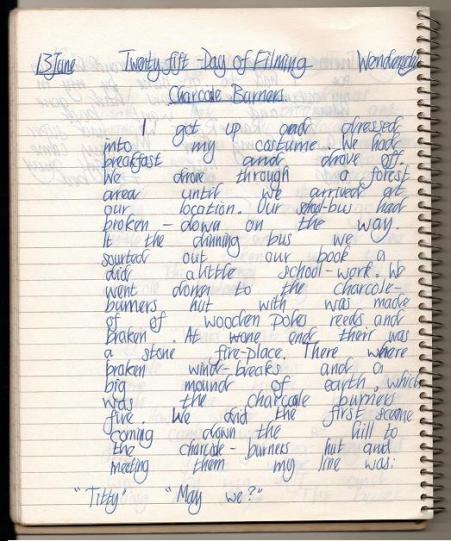 13 June Twenty fift - Day of Filming Wendersday
Charcole Burners
I got up and dressed
into my costume. We had
breakfast and drove off.
We drove through a forest
area until we arrived at
our location. Our school-bus had
broken - down on the way.
It the dinning bus we
sourted out our book a
did alittle school-work. We
went down to the charcole-
burners hut with was made
of of wooden poles reeds and
braken. At wone end their was
a stone fire-place. There where
braken wind-breaks and a
big mound of earth, which
was the charcole burners
fire. We did the first sceane
coming down the hill to
the charcole-burners hut and
meeting them my line was:
"Titty" "May we?"